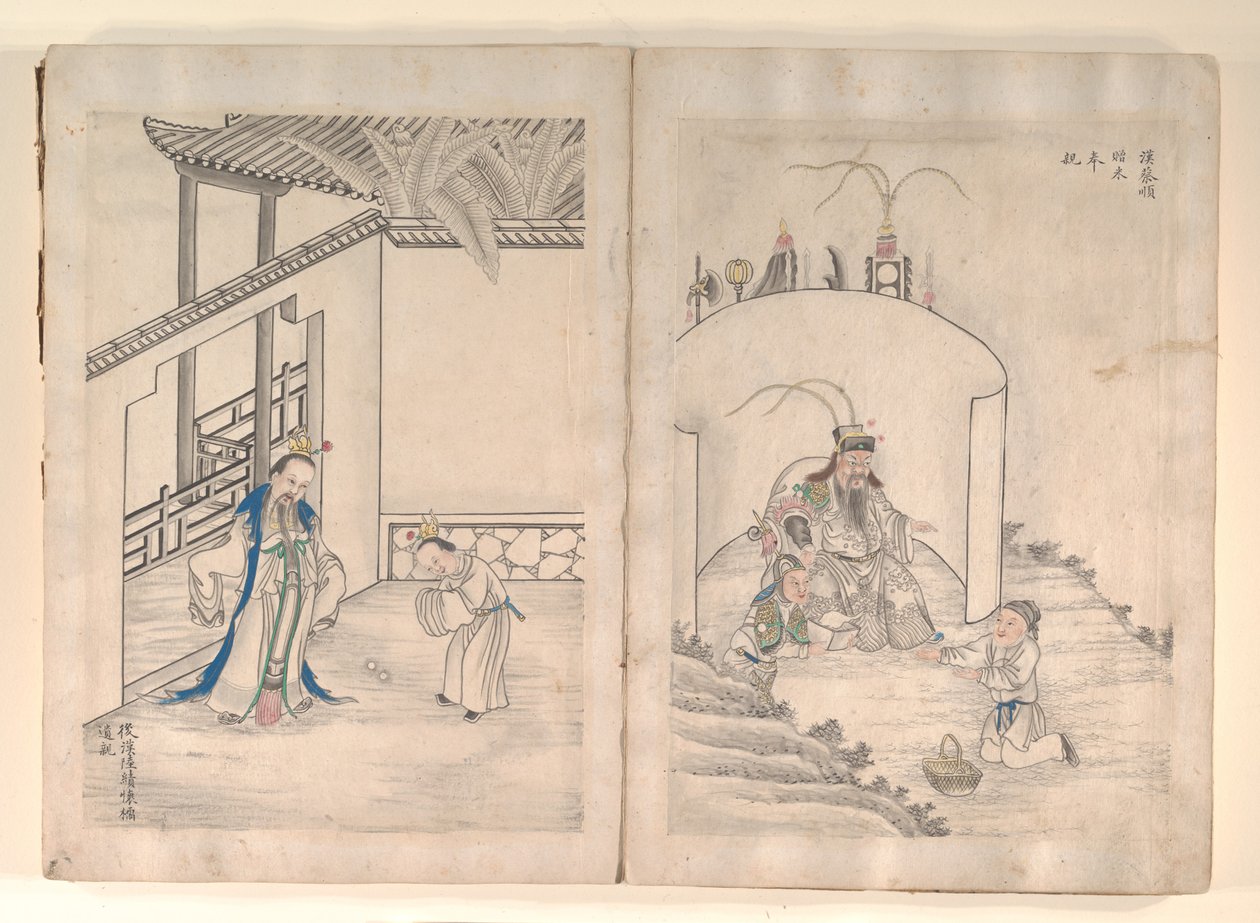 漢蔡順
贈米
奉
親
後漢陸績懷橘
遺親